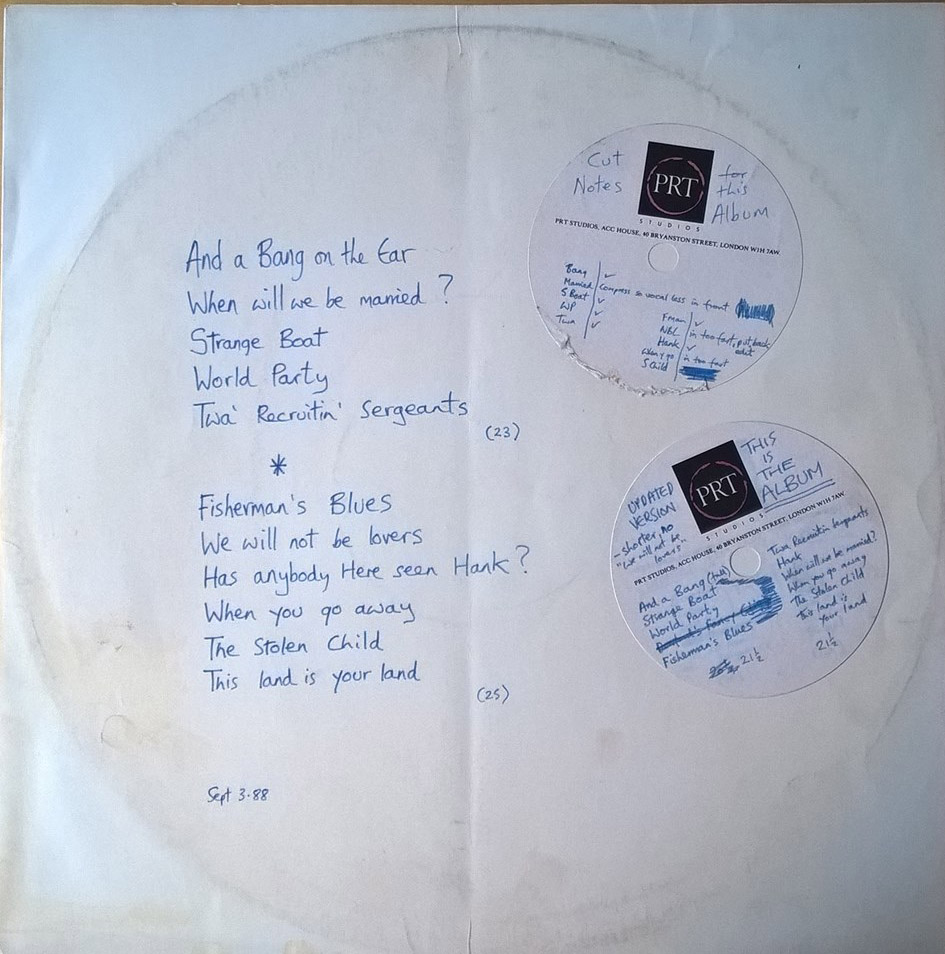 And a Bang on the Ear
When will we be married ?
Strange Boat
World Party
Twa' Recruitin' Sergeants
(23)
*
Fisherman's Blues
We will not be lovers
Has anybody Here seen Hank ?
When you go away
The Stolen Child
This land is your land
(25)
Sept 3.88
Cut Notes
for this Album
PRT
STUDIOS
PRT STUDIOS, ACC HOUSE, 40 BRYANSTON STREET, LONDON W1H 7AW.
Bang ✓
Married Compress so vocal less in front
S Boat ✓
WP ✓
Twa ✓
Fman ✓
NBL in too fast, put back edit
Hank ✓
When y go in too fast
S Child
UPDATED
VERSION
- shorter, no
"we will not be
lovers"
PRT
STUDIOS
THIS
IS
THE
ALBUM
PRT STUDIOS, ACC HOUSE, 40 BRYANSTON STREET, LONDON W1H 7AW
And a Bang
Strange Boat
World Party
Fisherman's Blues
21½
Twa Recruitin Sergeants
Hank
When will we be married?
When you go away
The Stolen Child
This land is
your land
21½